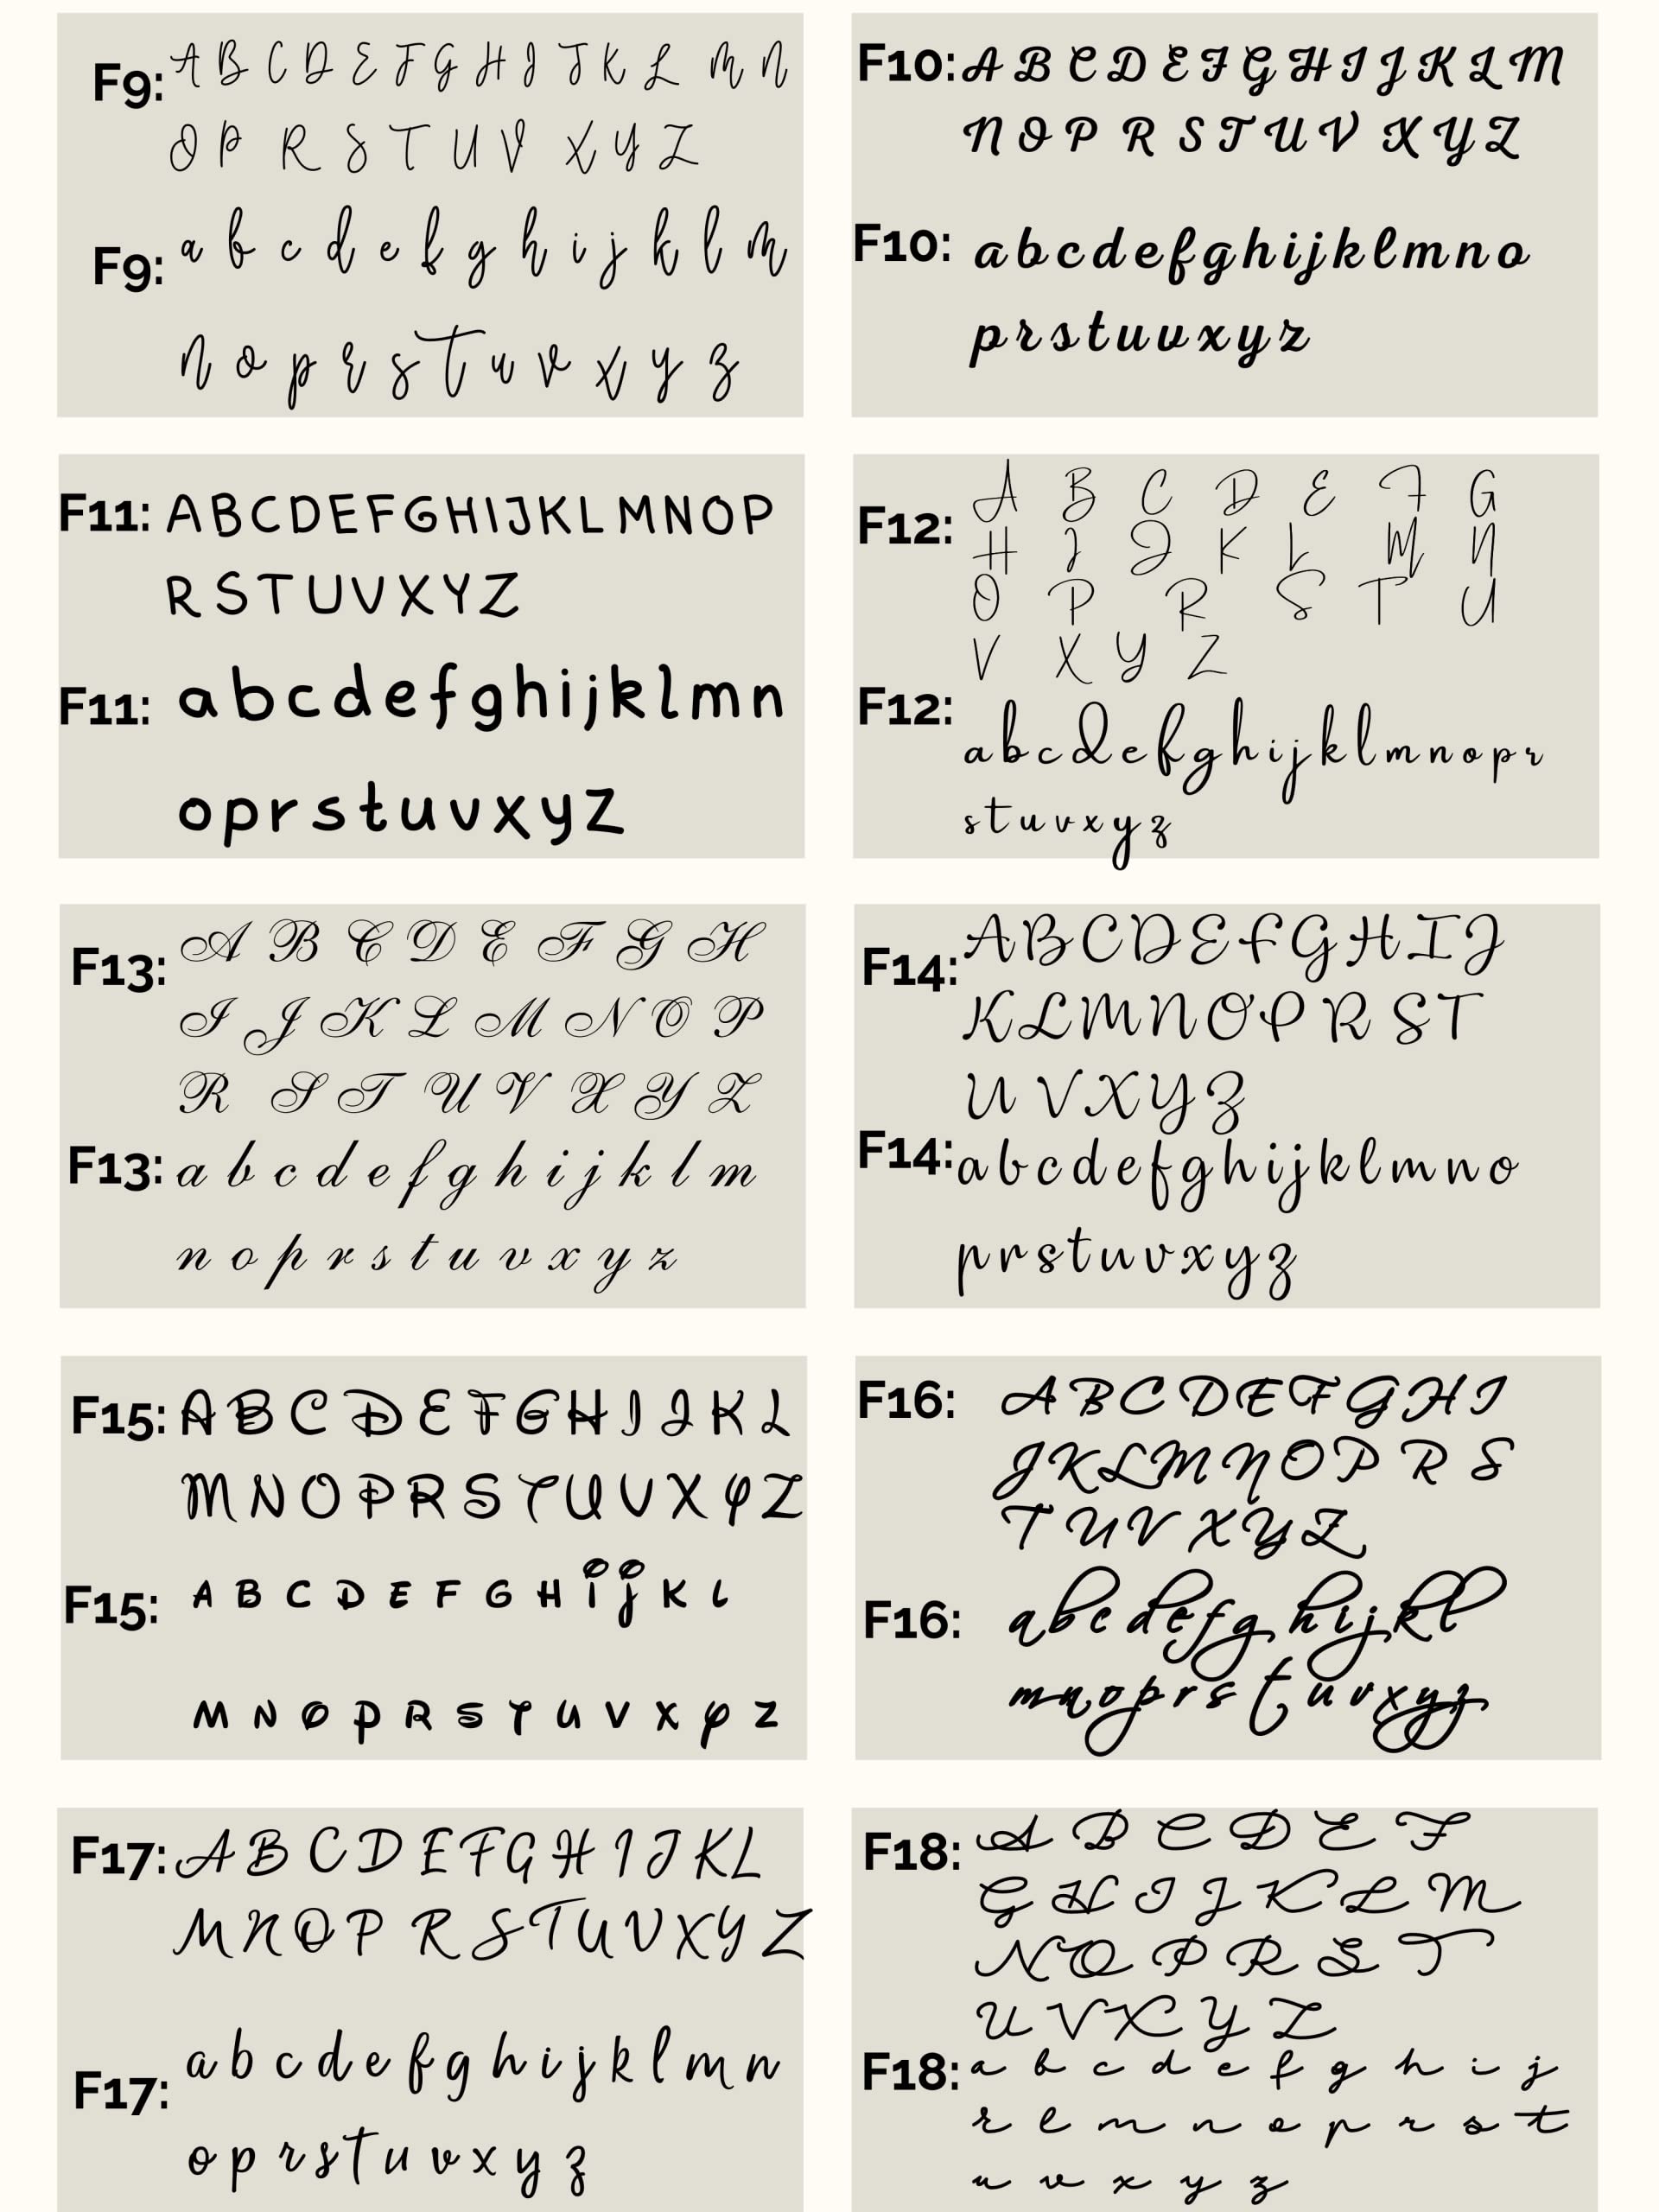 F9: A B C D E F G H I J K L M N
O P R S T U V X Y Z
F9: a b c d e f g h i j k l m
n o p r s t u v x y z
F10: A B C D E F G H I J K L M
N O P R S T U V X Y Z
F10: a b c d e f g h i j k l m n o
p r s t u v x y z
F11: A B C D E F G H I J K L M N O P
R S T U V X Y Z
F11: a b c d e f g h i j k l m n
o p r s t u v x y z
F12: A B C D E F G
H I J K L M N
O P R S T U
V X Y Z
F12: a b c d e f g h i j k l m n o p r
s t u v x y z
F13: A B C D E F G H
I J K L M N O P
R S T U V X Y Z
F13: a b c d e f g h i j k l m
n o p r s t u v x y z
F14: A B C D E F G H I J
K L M N O P R S T
U V X Y Z
F14: a b c d e f g h i j k l m n o
p r s t u v x y z
F15: A B C D E F G H I J K L
M N O P R S T U V X Y Z
F15: A B C D E F G H i j K l
M N O P R S T U V X Y Z
F16: A B C D E F G H I
J K L M N O P R S
T U V X Y Z
F16: a b c d e f g h i j k l
m n o p r s t u v x y z
F17: A B C D E F G H I J K L
M N O P R S T U V X Y Z
F17: a b c d e f g h i j k l m n
o p r s t u v x y z
F18: A B C D E F
G H I J K L M
N O P R S T
U V X Y Z
F18: a b c d e f g h i j
k l m n o p r s t
u v x y z